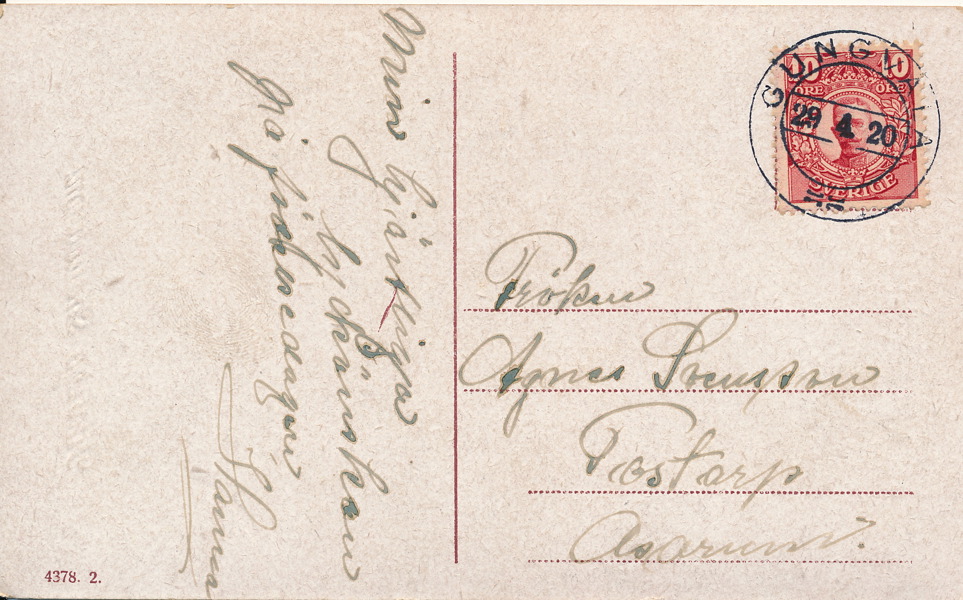 Min hjärtliga
lyckönskan
på födelsedagen
Hanna
4378. 2.
GUNGVALA
29 4 20
10 10
ÖRE ÖRE
SVERIGE
Fröken
Agnes Svensson
Tostarp
Asarum.